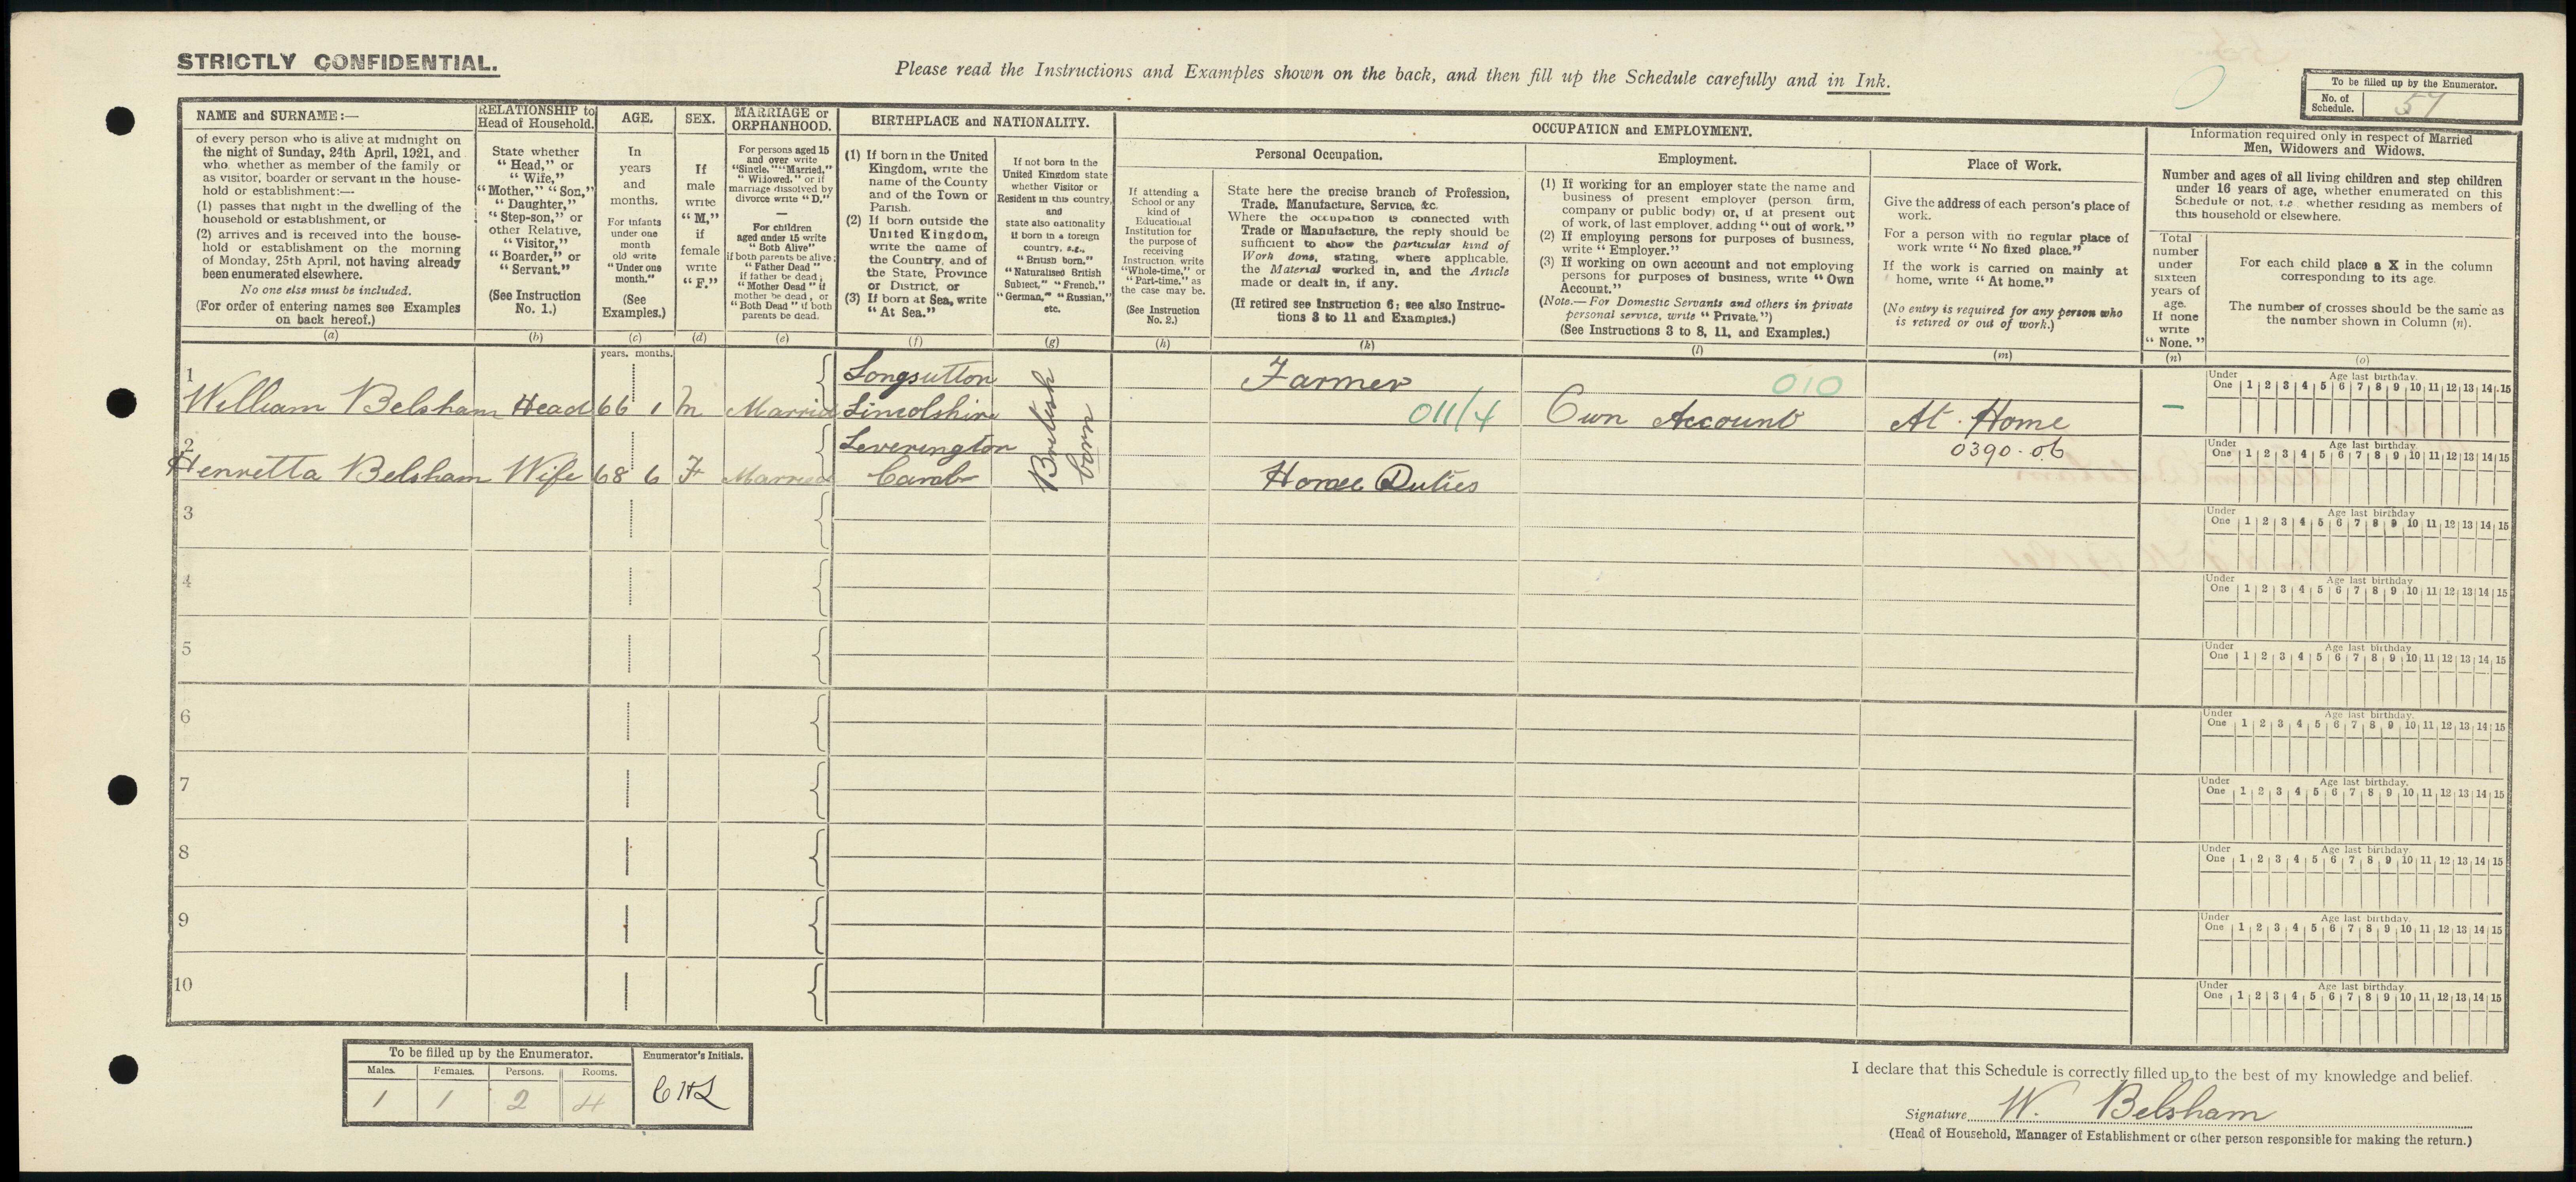 STRICTLY CONFIDENTIAL.
Please read the Instructions and Examples shown on the back, and then fill up the Schedule carefully and in Ink.
To be filled up by the Enumerator.
No. of Schedule. 57
NAME and SURNAME:—
of every person who is alive at midnight on
the night of Sunday, 24th April, 1921, and
who whether as member of the family or
as visitor, boarder or servant in the house-
hold or establishment:—
(1) passes that night in the dwelling of the
household or establishment, or
(2) arrives and is received into the house-
hold or establishment on the morning
of Monday, 25th April, not having already
been enumerated elsewhere.
No one else must be included.
(For order of entering names see Examples
on back hereof.)
(a)
RELATIONSHIP to
Head of Household.
State whether
"Head," or
"Wife,"
"Mother," "Son,"
"Daughter,"
"Step-son," or
other Relative,
"Visitor,"
"Boarder," or
"Servant."
(See Instruction
No. 1.)
(b)
AGE.
In
years
and
months.
For infants
under one
month
old write
"Under one
month."
(See
Examples.)
(c)
SEX.
If
male
write
"M,"
if
female
write
"F."
(d)
MARRIAGE or
ORPHANHOOD.
For persons aged 15
and over write
"Single," "Married,"
"Widowed," or if
marriage dissolved by
divorce write "D."
—
For children
aged under 15 write
"Both Alive"
if both parents be alive;
"Father Dead"
if father be dead;
"Mother Dead" if
mother be dead, or
"Both Dead" if both
parents be dead.
(e)
BIRTHPLACE and NATIONALITY.
(1) If born in the United
Kingdom, write the
name of the County
and of the Town or
Parish.
(2) If born outside the
United Kingdom,
write the name of
the Country, and of
the State, Province
or District, or
(3) If born at Sea, write
"At Sea."
(f)
If not born in the
United Kingdom state
whether Visitor or
Resident in this country,
and
state also nationality
if born in a foreign
country, e.g.,
"British born,"
"Naturalised British
Subject," "French,"
"German," "Russian,"
etc.
(g)
OCCUPATION and EMPLOYMENT.
Personal Occupation.
If attending a
School or any
kind of
Educational
Institution for
the purpose of
receiving
Instruction, write
"Whole-time," or
"Part-time," as
the case may be.
(See Instruction
No. 2.)
(h)
State here the precise branch of Profession,
Trade, Manufacture, Service, &c.
Where the occupation is connected with
Trade or Manufacture, the reply should be
sufficient to show the particular kind of
Work done, stating, where applicable,
the Material worked in, and the Article
made or dealt in, if any.
(If retired see Instruction 6; see also Instruc-
tions 3 to 11 and Examples.)
(k)
Employment.
(1) If working for an employer state the name and
business of present employer (person, firm,
company or public body) or, if at present out
of work, of last employer, adding "out of work."
(2) If employing persons for purposes of business,
write "Employer."
(3) If working on own account and not employing
persons for purposes of business, write "Own
Account."
(Note.—For Domestic Servants and others in private
personal service, write "Private.")
(See Instructions 3 to 8, 11, and Examples.)
(l)
Place of Work.
Give the address of each person's place of
work.
For a person with no regular place of
work write "No fixed place."
If the work is carried on mainly at
home, write "At home."
(No entry is required for any person who
is retired or out of work.)
(m)
Information required only in respect of Married
Men, Widowers and Widows.
Number and ages of all living children and step children
under 16 years of age, whether enumerated on this
Schedule or not, i.e. whether residing as members of
this household or elsewhere.
Total
number
under
sixteen
years of
age.
If none
write
"None."
(n)
For each child place a X in the column
corresponding to its age.
The number of crosses should be the same as
the number shown in Column (n).
(o)
years. months.
1 William Belsham Head 66 1 M Married Longsutton Lincolnshire British born Farmer 011/4 Own Account 010 At Home 0390.06 —
Under One Age last birthday. 1 2 3 4 5 6 7 8 9 10 11 12 13 14 15
2 Henretta Belsham Wife 68 6 F Married Leverington Camb Home Duties
Under One Age last birthday. 1 2 3 4 5 6 7 8 9 10 11 12 13 14 15
3
Under One Age last birthday 1 2 3 4 5 6 7 8 9 10 11 12 13 14 15
4
Under One Age last birthday 1 2 3 4 5 6 7 8 9 10 11 12 13 14 15
5
Under One Age last birthday 1 2 3 4 5 6 7 8 9 10 11 12 13 14 15
6
Under One Age last birthday. 1 2 3 4 5 6 7 8 9 10 11 12 13 14 15
7
Under One Age last birthday. 1 2 3 4 5 6 7 8 9 10 11 12 13 14 15
8
Under One Age last birthday. 1 2 3 4 5 6 7 8 9 10 11 12 13 14 15
9
Under One Age last birthday. 1 2 3 4 5 6 7 8 9 10 11 12 13 14 15
10
Under One Age last birthday. 1 2 3 4 5 6 7 8 9 10 11 12 13 14 15
To be filled up by the Enumerator.
Males. Females. Persons. Rooms.
1 1 2 4
Enumerator's Initials.
CHL
I declare that this Schedule is correctly filled up to the best of my knowledge and belief.
Signature W. Belsham
(Head of Household, Manager of Establishment or other person responsible for making the return.)